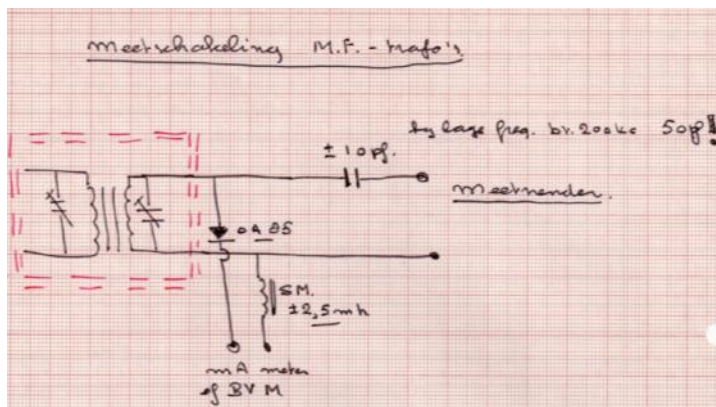 meetschakeling M.F.-trafo's
by lage freq. bv. 200kc 50pf!
± 10pf.
meetzender.
OA 85
SM.
± 2,5 mh
mA meter
of BVM